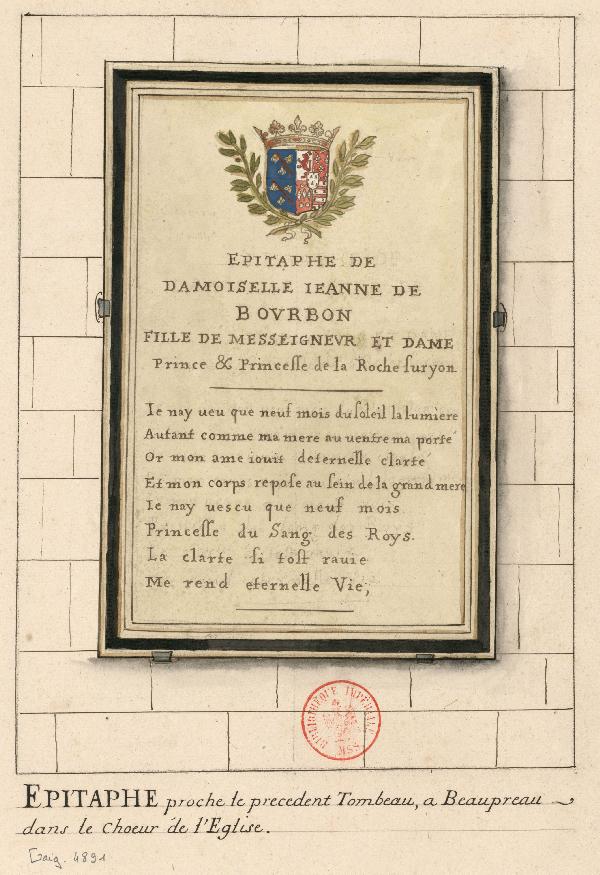 EPITAPHE DE
DAMOISELLE IEANNE DE
BOVRBON
FILLE DE MESSEIGNEVR ET DAME
Prince & Princesse de la Roche suryon
Ie nay ueu que neuf mois du soleil la lumiere
Autant comme ma mere au uentre ma porté
Or mon ame iouit deternelle clarté
Et mon corps repose au sein de la grand mere
Ie nay uescu que neuf mois
Princesse du Sang des Roys.
La clarte si tost rauie
Me rend eternelle Vie,
BIBLIOTHÈQUE IMPÉRIALE
MSS
EPITAPHE proche le precedent Tombeau, a Beaupreau
dans le Choeur de l'Eglise.
Gaig. 4891